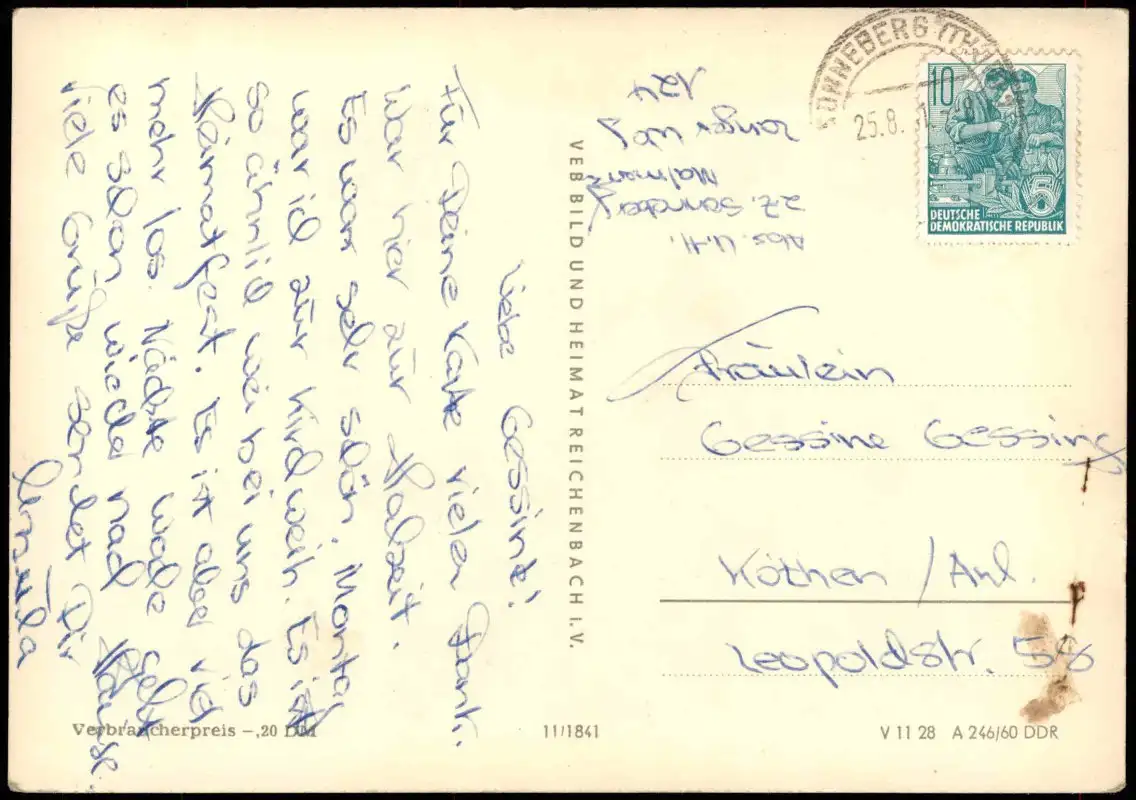 Liebe Gessine!
Für Deine Karte vielen Dank.
War hier zur Habeit.
Es war sehr schön. Montag
war ich zur Kirchweih. Es ist
so ähnlich wie bei uns das
Heimatfest. Es ist aber viel
mehr los. Nächste Woche geht
es schon wieder nach Hause.
Viele Grüße sendet Dir
Ursula
Abs. U. H.
z.Z. Sonneberg
124
VEB BILD UND HEIMAT REICHENBACH I. V.
SONNEBERG (THÜR
25.8.
10
5
DEUTSCHE
DEMOKRATISCHE REPUBLIK
Fräulein
Gessine Gessing
Köthen / Anh.
Leopoldstr. 58
Verbraucherpreis -,20 DM
11/1841
V 11 28 A 246/60 DDR